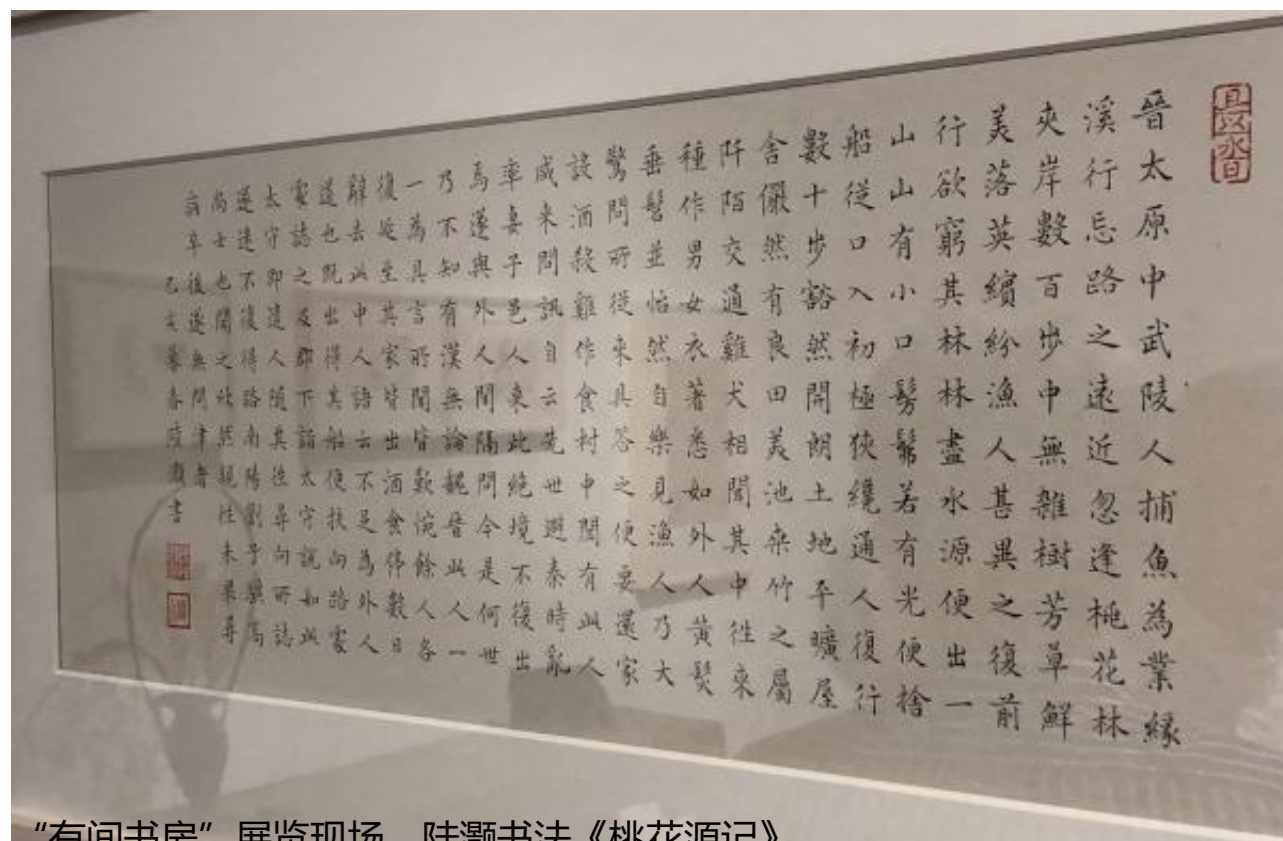 且以永日
晉太原中武陵人捕魚為業緣
溪行忘路之遠近忽逢桃花林
夾岸數百步中無雜樹芳草鮮
美落英繽紛漁人甚異之復前
行欲窮其林林盡水源便出一
山山有小口髣髴若有光便捨
船從口入初極狹纔通人復行
數十步豁然開朗土地平曠屋
舍儼然有良田美池桑竹之屬
阡陌交通雞犬相聞其中往來
種作男女衣著悉如外人黃髮
垂髫並怡然自樂見漁人乃大
驚問所從來具答之便要還家
設酒殺雞作食村中聞有此人
咸來問訊自云先世避秦時亂
率妻子邑人來此絕境不復出
焉遂與外人間隔問今是何世
乃不知有漢無論魏晉此人一
一為具言所聞皆歎惋餘人各
復延至其家皆出酒食停數日
辭去此中人語云不足為外人
道也既出得其船便扶向路處
處誌之及郡下詣太守說如此
太守即遣人隨其往尋向所誌
遂迷不復得路南陽劉子驥高
尚士也聞之欣然規往未果尋
病卒後遂無問津者
己亥暮春陸灝書
“有间书房”展览现场 陆灏书法《桃花源记》